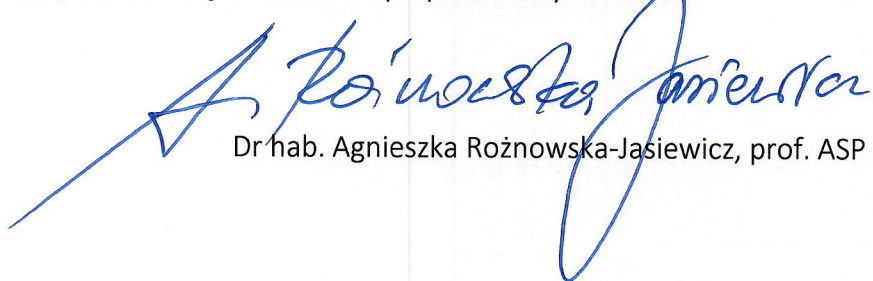 A. Rożnowska Jasiewicz
Dr hab. Agnieszka Rożnowska-Jasiewicz, prof. ASP